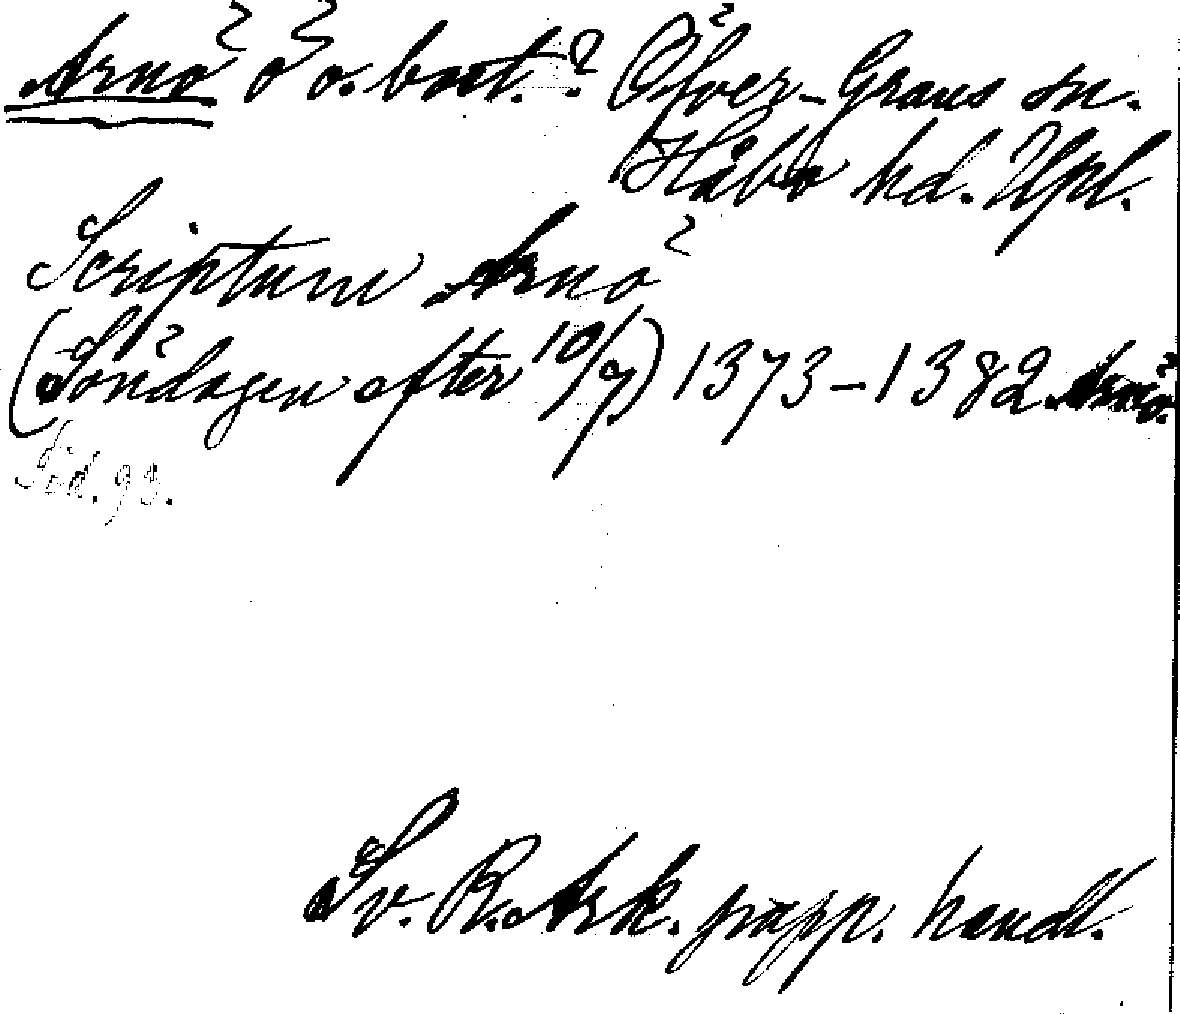 Arnö ö o. bost.? Öfver-Grans sn.
Håbo hd. Upl.
Scriptum Arnö
(Söndagen efter 10/9) 1373–1382 Arnö.
Göd. 93.
Sv. R. Ark. papp. handl.